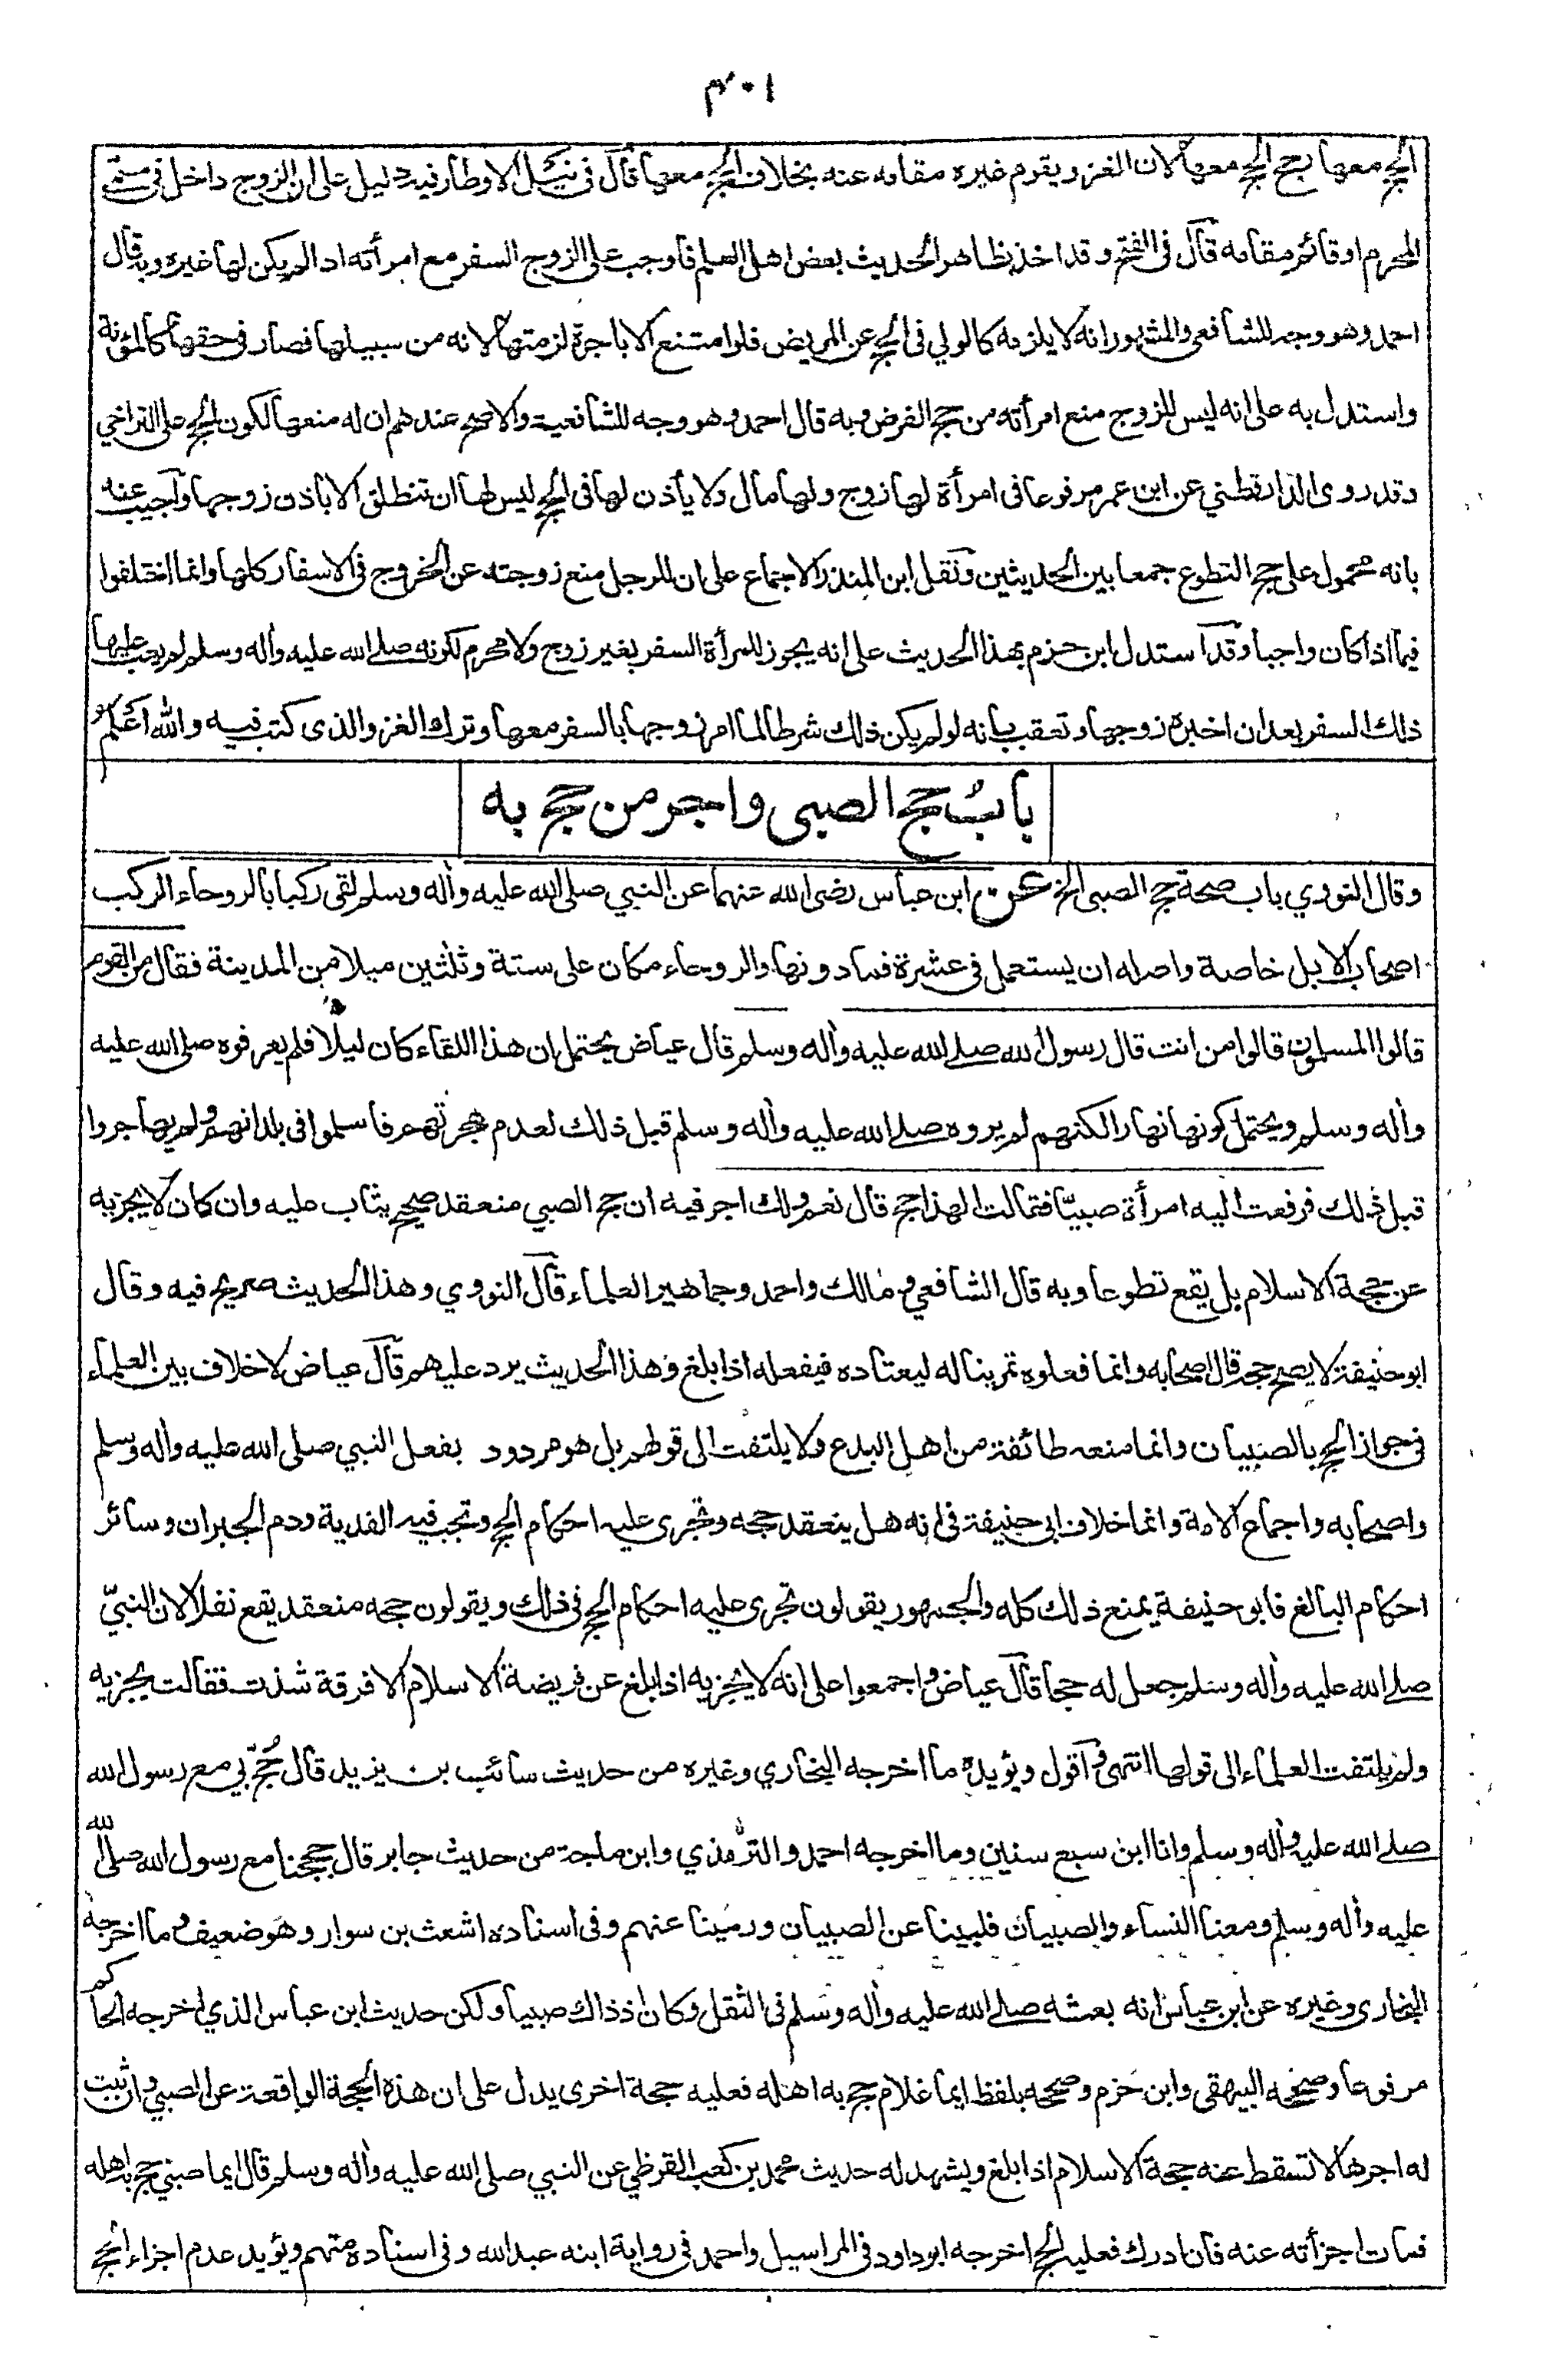 ٣٠١
الحج معها رجح الحج معها لان الغزو يقوم غيره مقامه عنه بخلاف الحج معها قال فى نيل الاوطار فيه دليل على ان الزوج داخل فى مسمى
المحرم او قائم مقامه قال فى الفتح وقد اخذ بظاهر الحديث بعض اهل العلم فاوجب على الزوج السفر مع امرأته اذا لم يكن لها غيره وبه قال
احمد وهو وجه للشافعى والمشهور انه لا يلزمه كالولي فى الحج عن المريض فلو امتنع الا باجرة لزمتها لانه من سبيلها فصار فى حقها كالمؤنة
واستدل به على انه ليس للزوج منع امرأته من حج الفرض وبه قال احمد وهو وجه للشافعية والاصح عندهم ان له منعها لكون الحج على التراخي
وقد روى الدارقطني عن ابن عمر مرفوعا فى امرأة لها زوج ولها مال ولا يأذن لها فى الحج ليس لها ان تنطلق الا باذن زوجها واجيب عنه
بانه محمول على حج التطوع جمعا بين الحديثين ونقل ابن المنذر الاجماع على ان للرجل منع زوجته عن الخروج فى الاسفار كلها وانما اختلفوا
فيما اذا كان واجبا وقد استدل ابن حزم بهذا الحديث على انه يجوز للمرأة السفر بغير زوج ولا محرم لكونه صلى الله عليه وأله وسلم لم يعب عليها
ذلك السفر بعد ان اخبره زوجها وتعقب بانه لو لم يكن ذلك شرطا لما امر زوجها بالسفر معها وترك الغزو الذى كتب فيه والله اعلم
بابُ حج الصبى واجر من حج به
وقال النووي باب صحة حج الصبى الخ عن ابن عباس رضى الله عنهما عن النبي صلى الله عليه وأله وسلم لقى ركبا بالروحاء الركب
اصحاب الابل خاصة واصله ان يستعمل فى عشرة فما دونها والروحاء مكان على ستة وثلثين ميلا من المدينة فقال من القوم
قالوا المسلمون قالوا من انت قال رسول الله صلى الله عليه وأله وسلم قال عياض يحتمل ان هذا اللقاء كان ليلا فلم يعرفوه صلى الله عليه
وأله وسلم ويحتمل كونها نهارا لكنهم لم يروه صلى الله عليه وأله وسلم قبل ذلك لعدم هجرتهم فاسلموا فى بلدانهم ولم يهاجروا
قبل ذلك فرفعت اليه امرأة صبيّا فقالت الهذا حج قال نعم ولك اجر فيه ان حج الصبي منعقد صحيح يثاب عليه وان كان لا يجزيه
عن حجة الاسلام بل يقع تطوعا وبه قال الشافعي ومالك واحمد وجماهير العلماء قال النووي وهذا الحديث صريح فيه وقال
ابو حنيفة لا يصح حجه قال اصحابه وانما فعلوه تمرينا له ليعتاده فيفعله اذا بلغ وهذا الحديث يرد عليهم قال عياض لا خلاف بين العلماء
فى جواز الحج بالصبيان وانما منعه طائفة من اهل البدع ولا يلتفت الى قولهم بل هو مردود بفعل النبي صلى الله عليه وأله وسلم
واصحابه واجماع الامة وانما خلاف ابى حنيفة فى انه هل ينعقد حجه وتجرى عليه احكام الحج وتجب فيه الفدية ودم الجبران وسائر
احكام البالغ فابو حنيفة يمنع ذلك كله والجمهور يقولون تجرى عليه احكام الحج فى ذلك ويقولون حجه منعقد يقع نفلا لان النبيّ
صلى الله عليه وأله وسلم جعل له حجا قال عياض واجمعوا على انه لا يجزيه اذا بلغ عن فريضة الاسلام الا فرقة شذت فقالت يجزيه
ولم يلتفت العلماء الى قولها انتهى واقول ويؤيده ما اخرجه البخاري وغيره من حديث سائب بن يزيد قال حُجّ بي مع رسول الله
صلى الله عليه وأله وسلم وانا ابن سبع سنين وما اخرجه احمد والترمذي وابن ماجة من حديث جابر قال حججنا مع رسول الله صلى الله
عليه وأله وسلم ومعنا النساء والصبيان فلبينا عن الصبيان ورمينا عنهم وفى اسناده اشعث بن سوار وهو ضعيف وما اخرجه
البخارى وغيره عن ابن عباس انه بعثه صلى الله عليه وأله وسلم فى الثقل وكان اذ ذاك صبيا ولكن حديث ابن عباس الذي اخرجه الحاكم
مرفوعا وصححه البيهقى وابن حزم وصححه بلفظ ايما غلام حج به اهله فعليه حجة اخرى يدل على ان هذه الحجة الواقعة عن الصبي وان ثبت
له اجرها لا تسقط عنه حجة الاسلام اذا بلغ ويشهد له حديث محمد بن كعب القرظي عن النبي صلى الله عليه وأله وسلم قال ايما صبي حج به اهله
فمات اجزأته عنه فان ادرك فعليه الحج اخرجه ابو داود فى المراسيل واحمد فى رواية ابنه عبد الله وفى اسناده متهم ويؤيد عدم اجزاء الحج